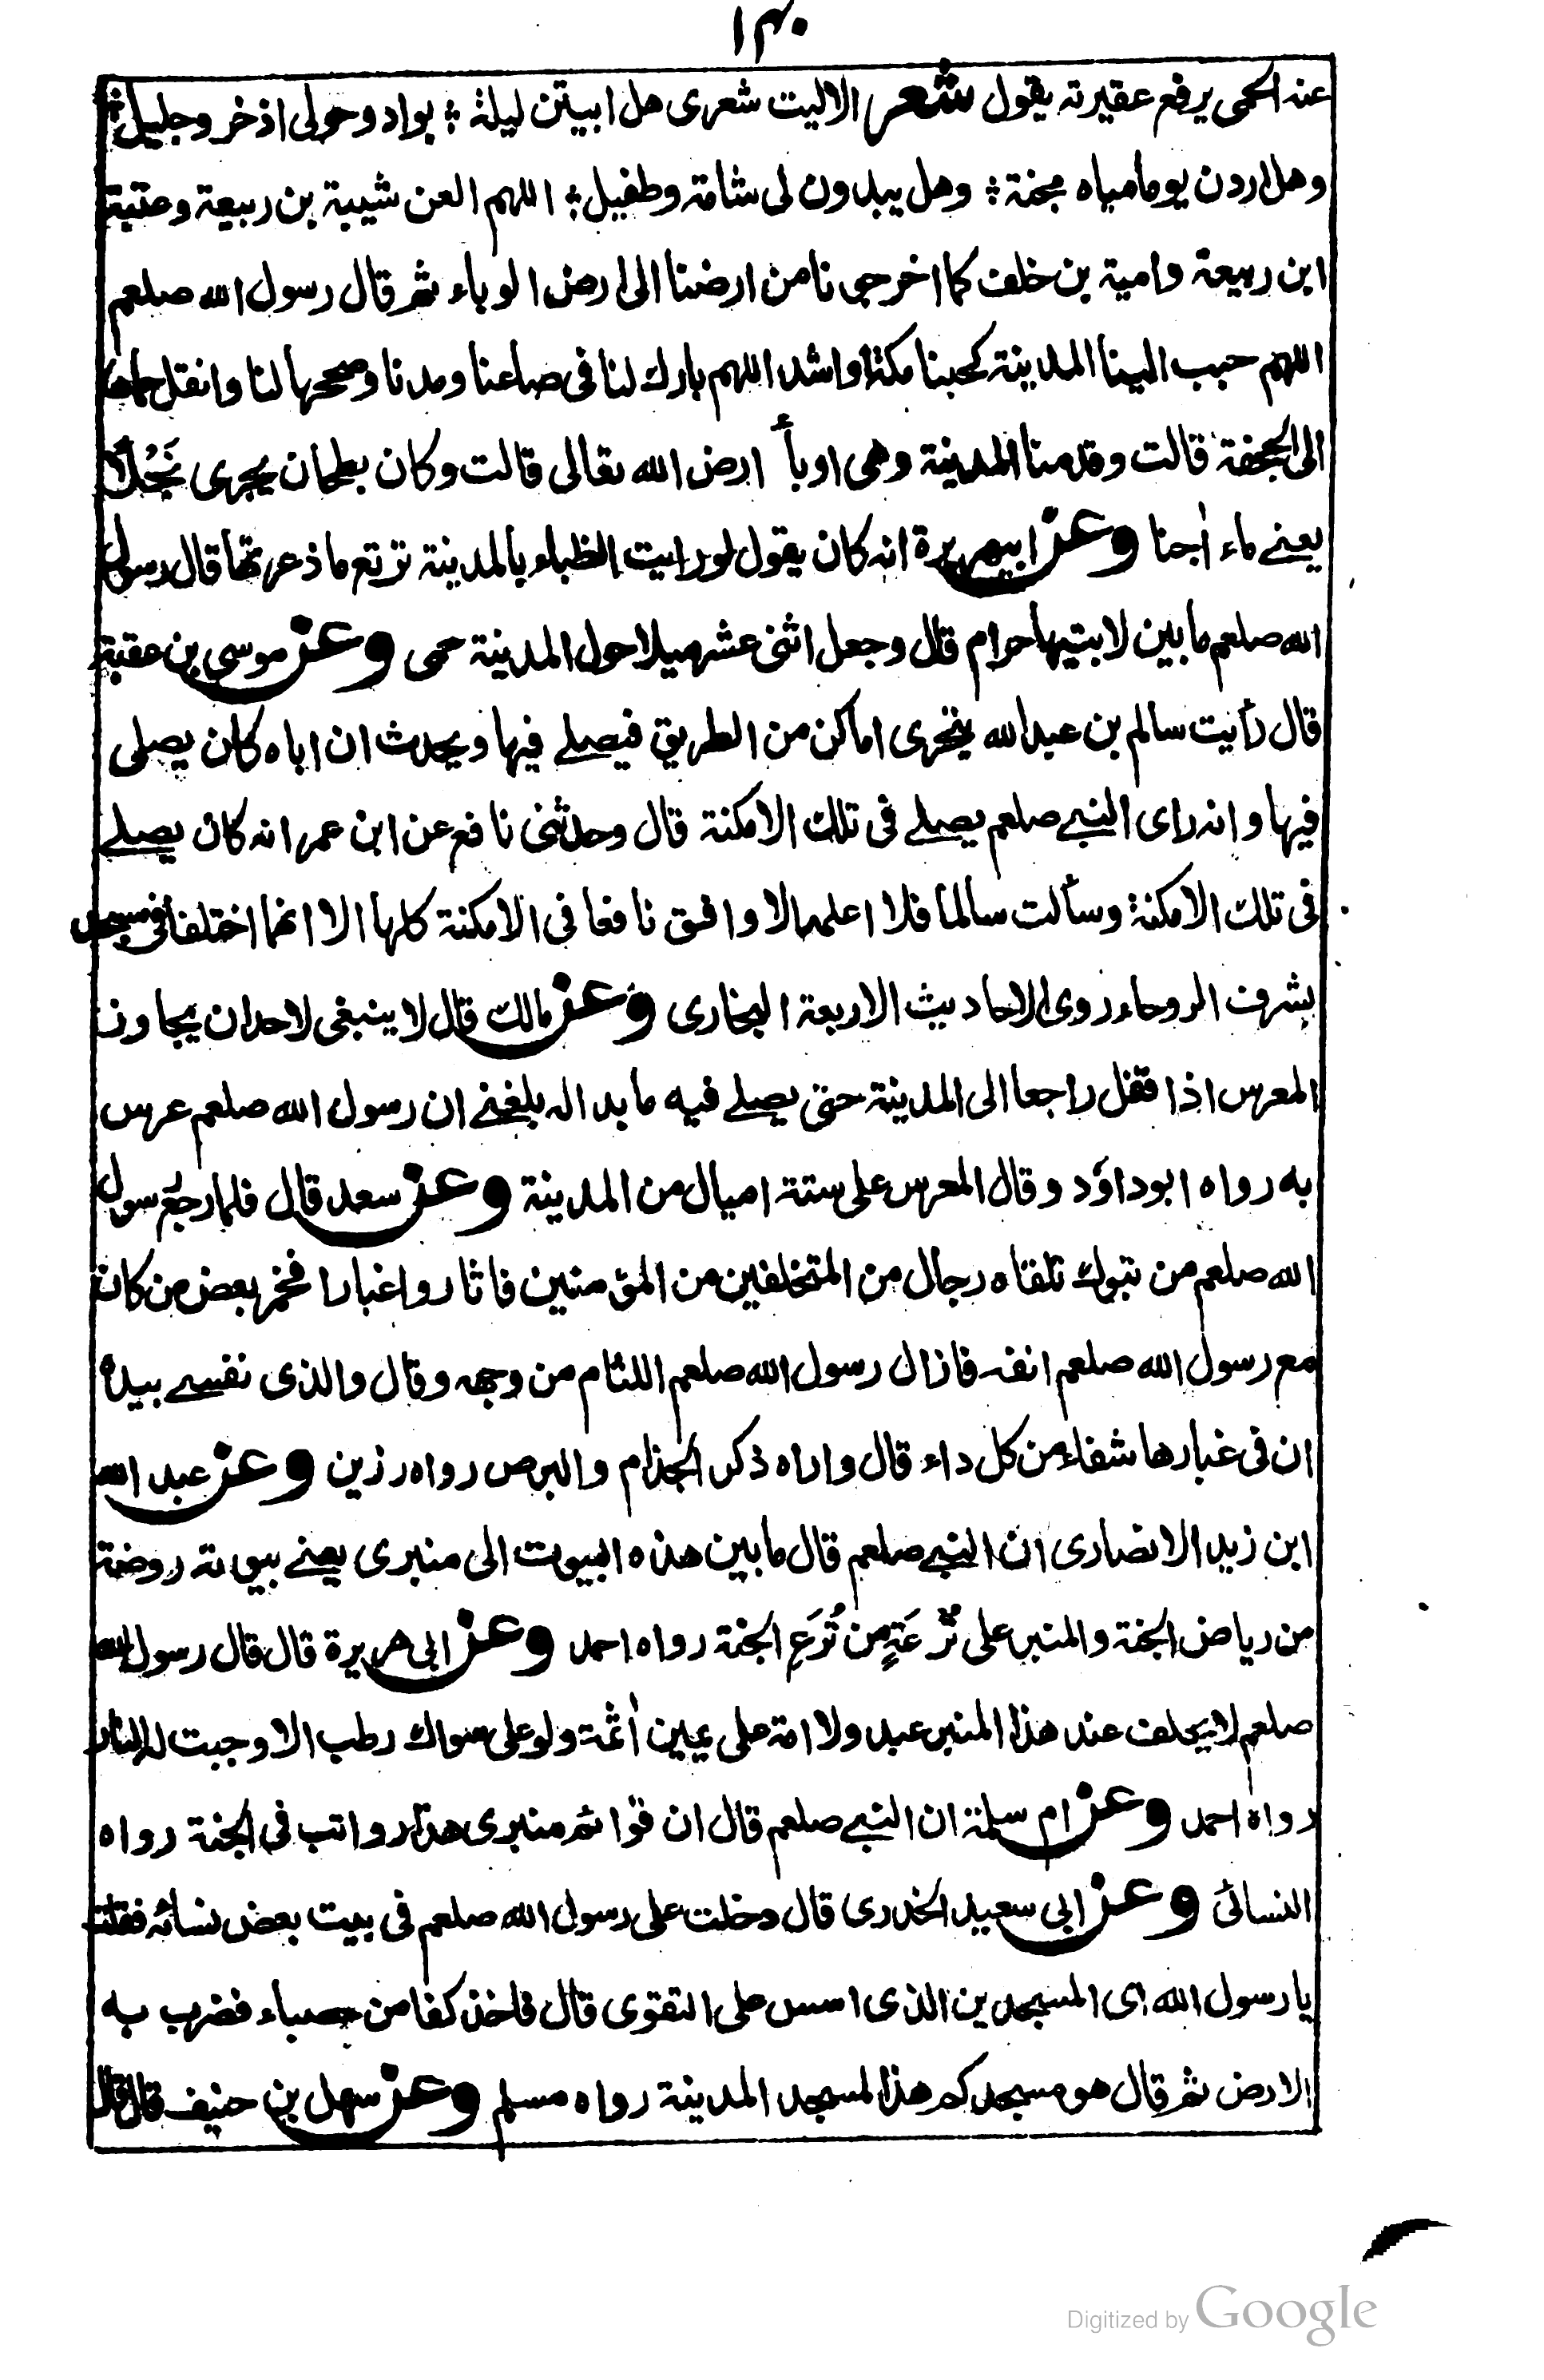 ١٣٠
عنه الحمى يرفع عقيرته يقول شعر الاليت شعرى هل ابيتن ليلة ؛ بواد وحولى اذخر وجليل؛
وهل اردن يوما مياه مجنة ؛ وهل يبدون لى شامة وطفيل ؛ اللهم العن شيبة بن ربيعة وعتبة
ابن ربيعة وامية بن خلف كما اخرجونا من ارضنا الى ارض الوباء ثم قال رسول الله صلعم
اللهم حبب الينا المدينة كحبنا مكة او اشد اللهم بارك لنا فى صاعنا ومدنا وصححها لنا وانقل حماها
الى الجحفة قالت وقدمنا المدينة وهى اوبأ ارض الله تعالى قالت وكان بطحان يجرى نَجْلًا
يعنے ماء اٰجنا وعن ابيهريرة انه كان يقول لو رايت الظباء بالمدينة ترتع ما ذعرتها قال رسول
الله صلعم ما بين لابتيها حرام قال وجعل اثنى عشر ميلا حول المدينة حمى وعن موسى بن عقبة
قال رأيت سالم بن عبدالله يتحرى اماكن من الطريق فيصلے فيها ويحدث ان اباه كان يصلى
فيها وانه راى النبے صلعم يصلے فى تلك الامكنة قال وحدثنى نافع عن ابن عمر انه كان يصلے
فى تلك الامكنة وسألت سالما فلا اعلمه الا وافق نافعا فى الامكنة كلها الا انهما اختلفا فى مسجد
بشرف الروحاء روى الاحاديث الاربعة البخارى وعن مالك قال لا ينبغى لاحد ان يجاوز
المعرس اذا قفل راجعا الى المدينة حتى يصلے فيه ما بدا له بلغنے ان رسول الله صلعم عرس
به رواه ابوداؤد وقال المعرس على ستة اميال من المدينة وعن سعد قال فلما رجع رسول
الله صلعم من تبوك تلقاه رجال من المتخلفين من المؤمنين فاثاروا غبارا فخمر بعض من كان
مع رسول الله صلعم انفه فازال رسول الله صلعم اللثام من وجهه وقال والذى نفسے بيده
ان فى غبارها شفاء من كل داء قال واراه ذكر الجذام والبرص رواه رزين وعن عبد الله
ابن زيد الانصارى ان النبے صلعم قال ما بين هذه البيوت الى منبرى يعنے بيوته روضة
من رياض الجنة والمنبر على تُرْعَةٍ من تُرَعِ الجنة رواه احمد وعن ابى هريرة قال قال رسول الله
صلعم لا يحلف عند هذا المنبر عبد ولا امة على يمين اٰثمة ولو على سواك رطب الا وجبت له النار
رواه احمد وعن ام سلمة ان النبے صلعم قال ان قوائم منبرى هذا رواتب فى الجنة رواه
النسائى وعن ابى سعيد الخدرى قال دخلت على رسول الله صلعم فى بيت بعض نسائه فقلت
يا رسول الله اى المسجدين الذى اسس على التقوى قال فاخذ كفا من حصباء فضرب به
الارض ثم قال هو مسجدكم هذا لمسجد المدينة رواه مسلم وعن سهل بن حنيف قال قال
Digitized by Google